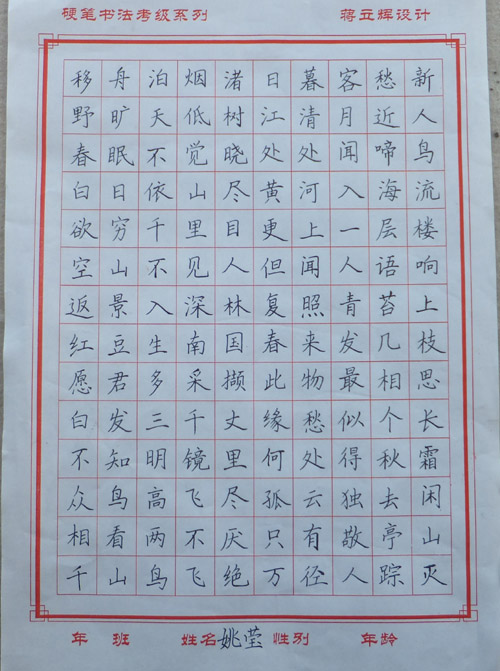 硬笔书法考级系列 蒋立辉设计
移舟泊烟渚日暮客愁新
野旷天低树江清月近人
春眠不觉晓处处闻啼鸟
白日依山尽黄河入海流
欲穷千里目更上一层楼
空山不见人但闻人语响
返景入深林复照青苔上
红豆生南国春来发几枝
愿君多采撷此物最相思
白发三千丈缘愁似个长
不知明镜里何处得秋霜
众鸟高飞尽孤云独去闲
相看两不厌只有敬亭山
千山鸟飞绝万径人踪灭
年 班 姓名姚莹 性别 年龄